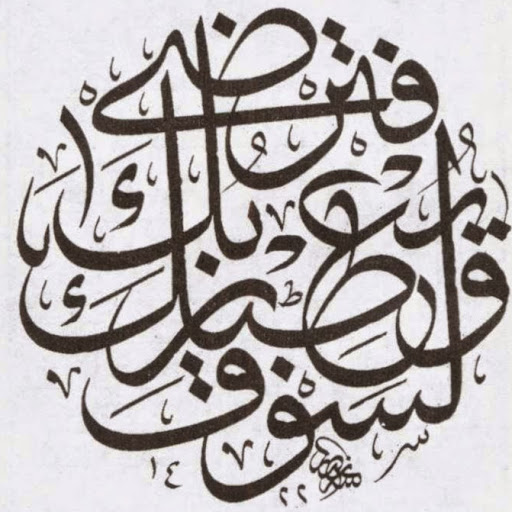 ولسوف يعطيك ربك فترضى
١٤٢٢